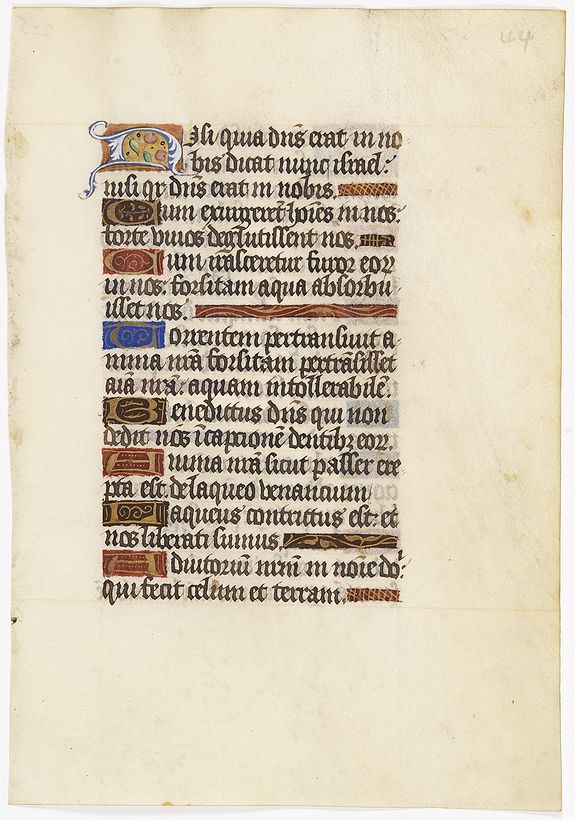 44
Nisi quia dns erat in no
bis dicat nunc israel:
nisi qr dns erat in nobis.
Cum exurgeret hoies in nos:
forte vivos deglutissent nos.
Cum irasceretur furor eor
in nos: forsitam aqua absorbu
isset nos.
Torrentem pertransivit a
nima nra forsitam pertrasisset
aia nra: aquam intollerabile.
Benedictus dns qui non
dedit nos i capcione dentibz eor.
Anima nra sicut passer ere
pta est. de laqueo venancium
Laqueus contritus est: et
nos liberati sumus.
Adiutoriu nrm in noie do:
qui fecit celum et terram.